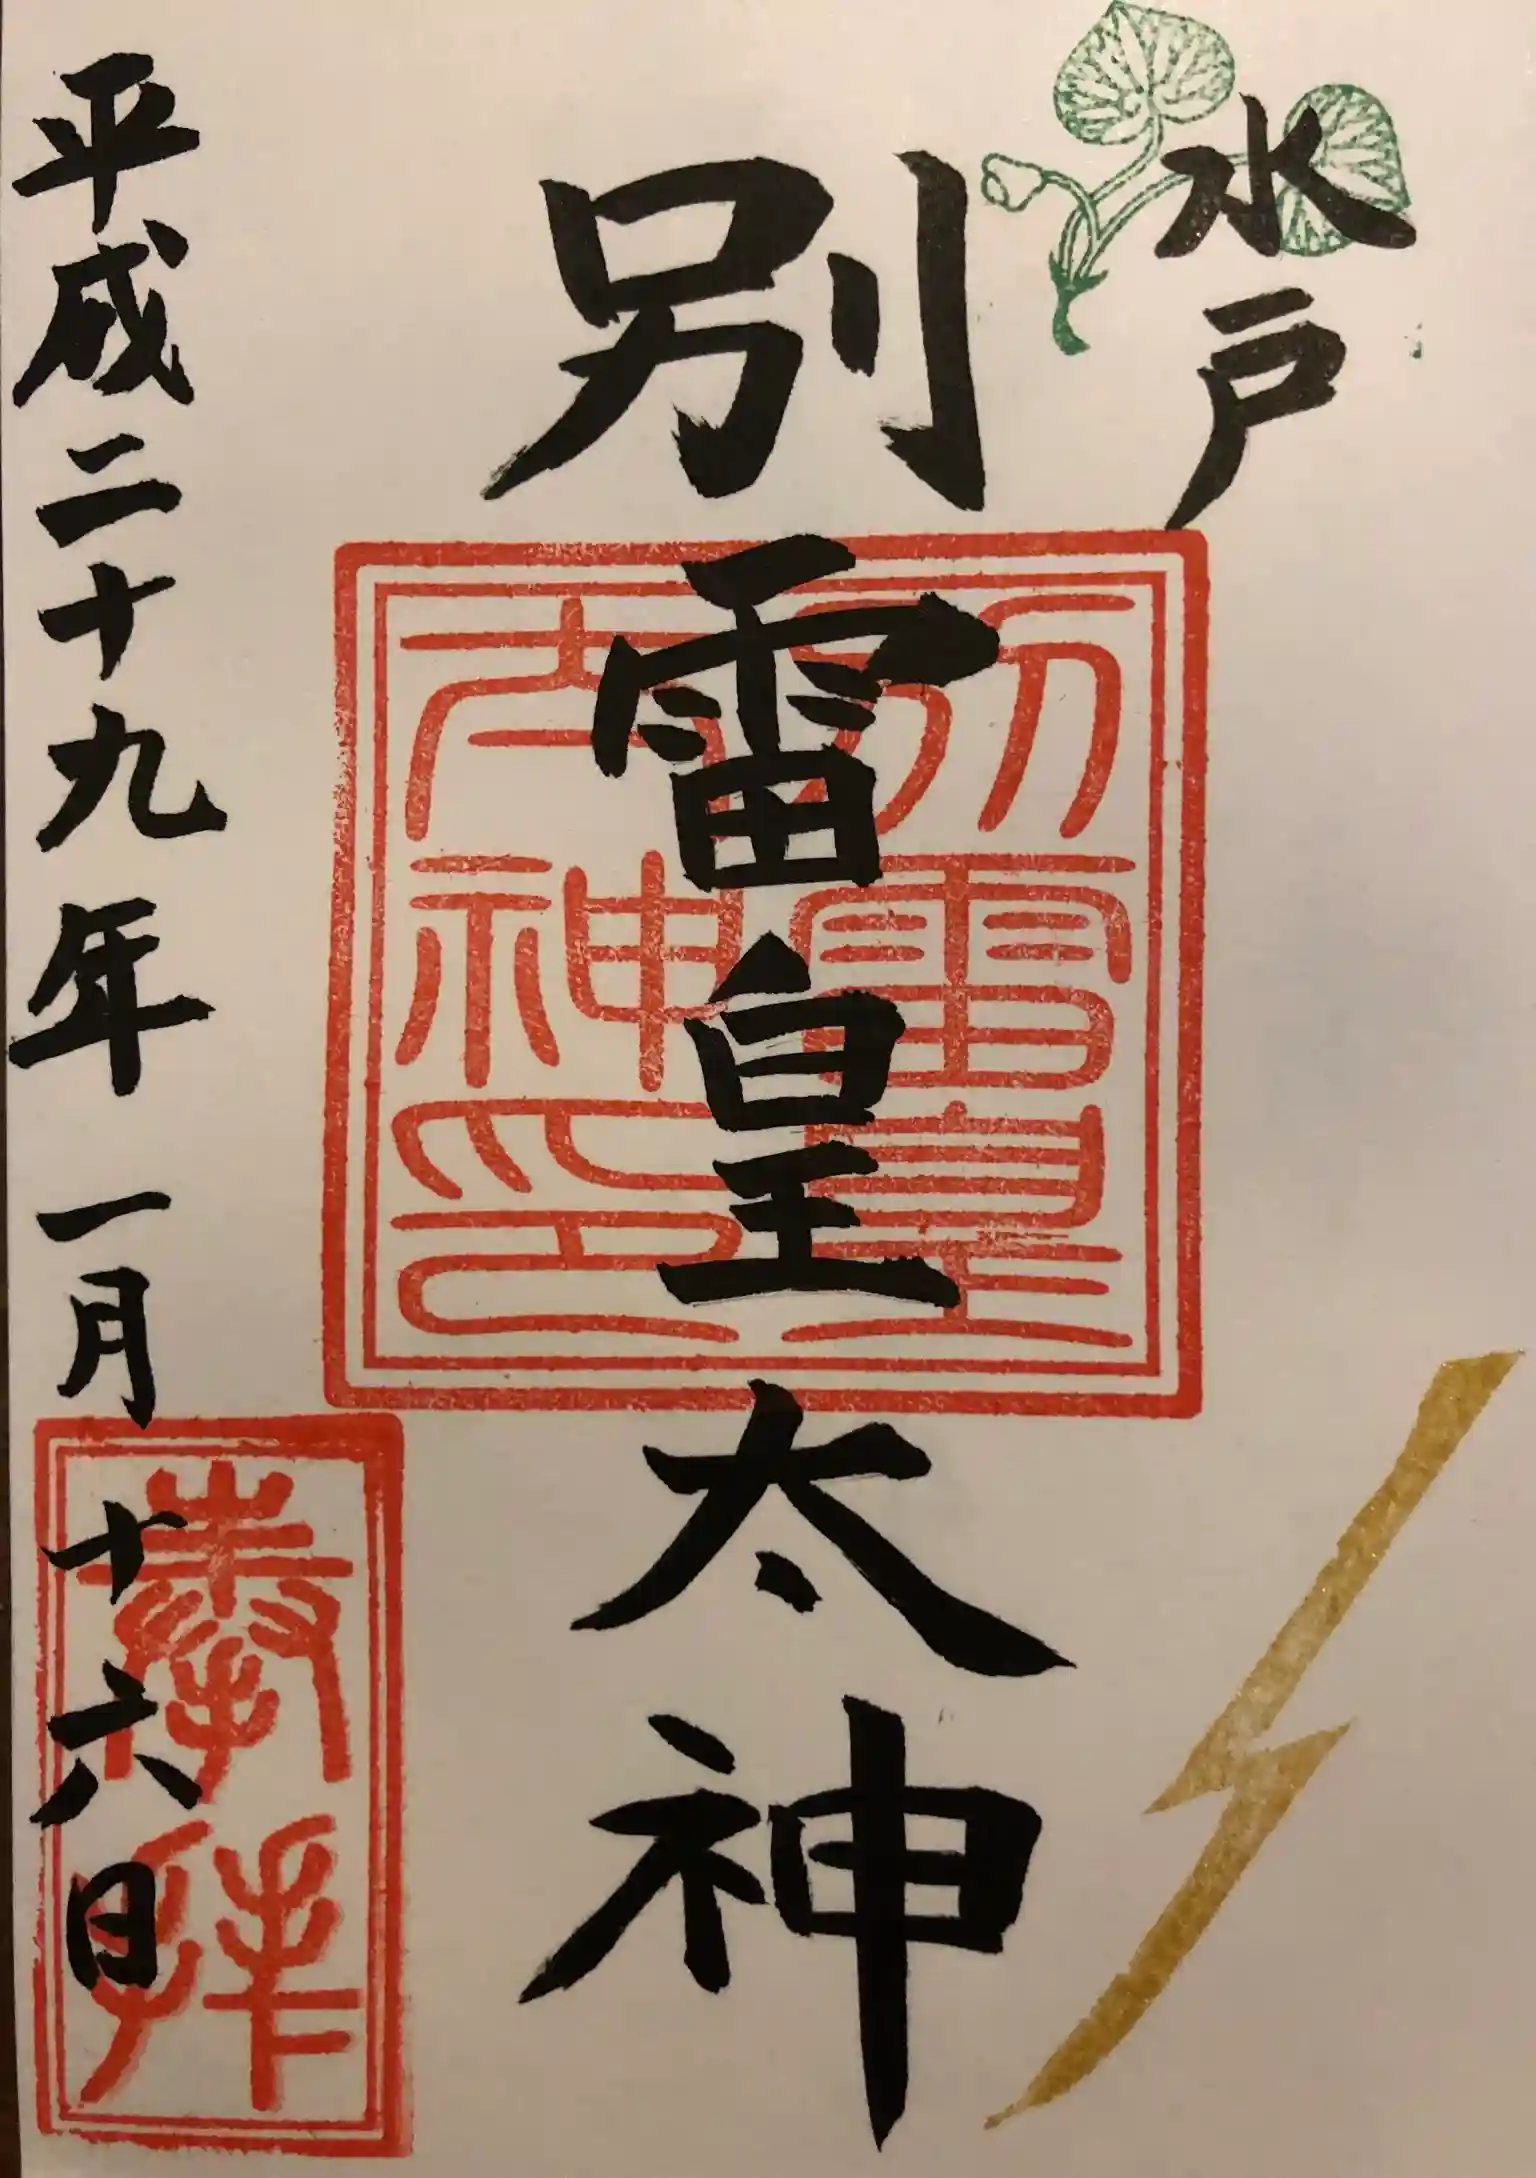 水戸
別雷皇太神
別雷皇
太神印
奉拝
平成二十九年一月十六日